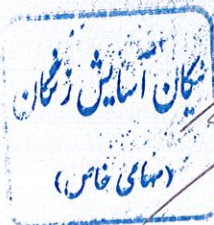 نیکان آسایش زنگان
(سهامی خاص)